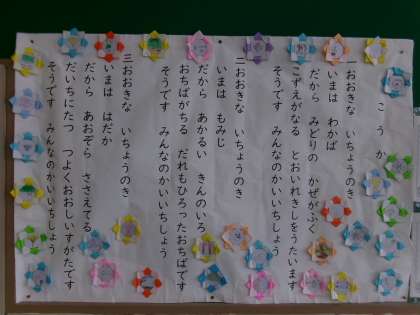 こうか
一おおきな いちょうのき
いまは わかば
だから みどりの かぜがふく
こずえがなる とおいれきしをうたいます
そうです みんなのかいいちしょう
二おおきな いちょうのき
いまは もみじ
だから あかるい きんのいろ
おちばがちる だれもひろったおちばです
そうです みんなのかいいちしょう
三おおきな いちょうのき
いまは はだか
だから あおぞら ささえてる
だいちにたつ つよくおおしいすがたです
そうです みんなのかいいちしょう